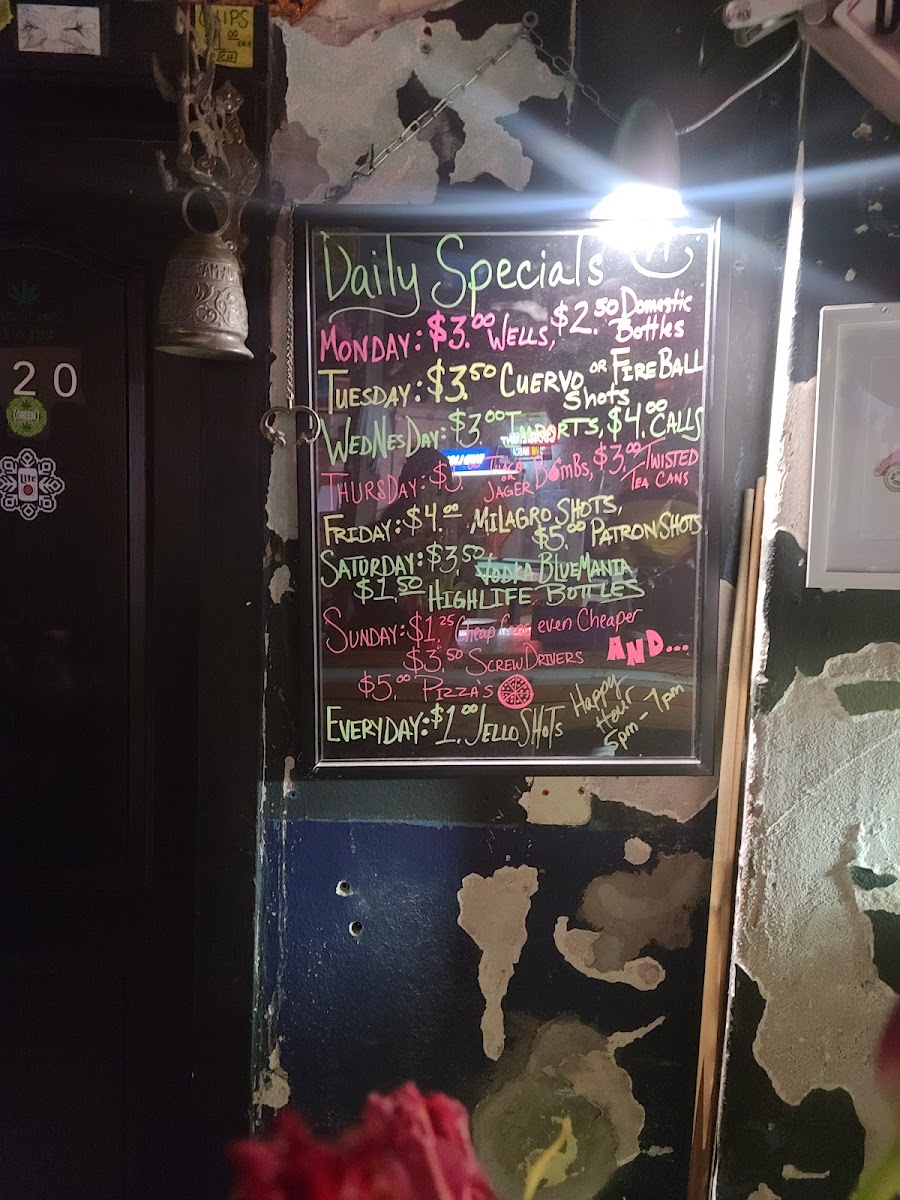 CHIPS
1.00
Daily Specials
MONDAY: $3.00 WELLS, $2.50 Domestic Bottles
TUESDAY: $3.50 CUERVO OR FIREBALL
Shots
WEDNESDAY: $3.00 IMPORTS, $4.00 CALLS
THURSDAY: $3. OR JAGER BOMBS, $3.00 TWISTED
TEA CANS
FRIDAY: $4.00 MILAGRO SHOTS,
$5.00 PATRON SHOTS
SATURDAY: $3.50 VODKA BLUEMANIA
$1.50 HIGHLIFE BOTTLES
SUNDAY: $1.25 Cheap even Cheaper
$3.50 SCREWDRIVERS AND...
$5.00 PIZZA'S
EVERYDAY: $1.00 JELLO SHOTS
Happy
Hour
5pm-7pm
20
GREEN
Lite